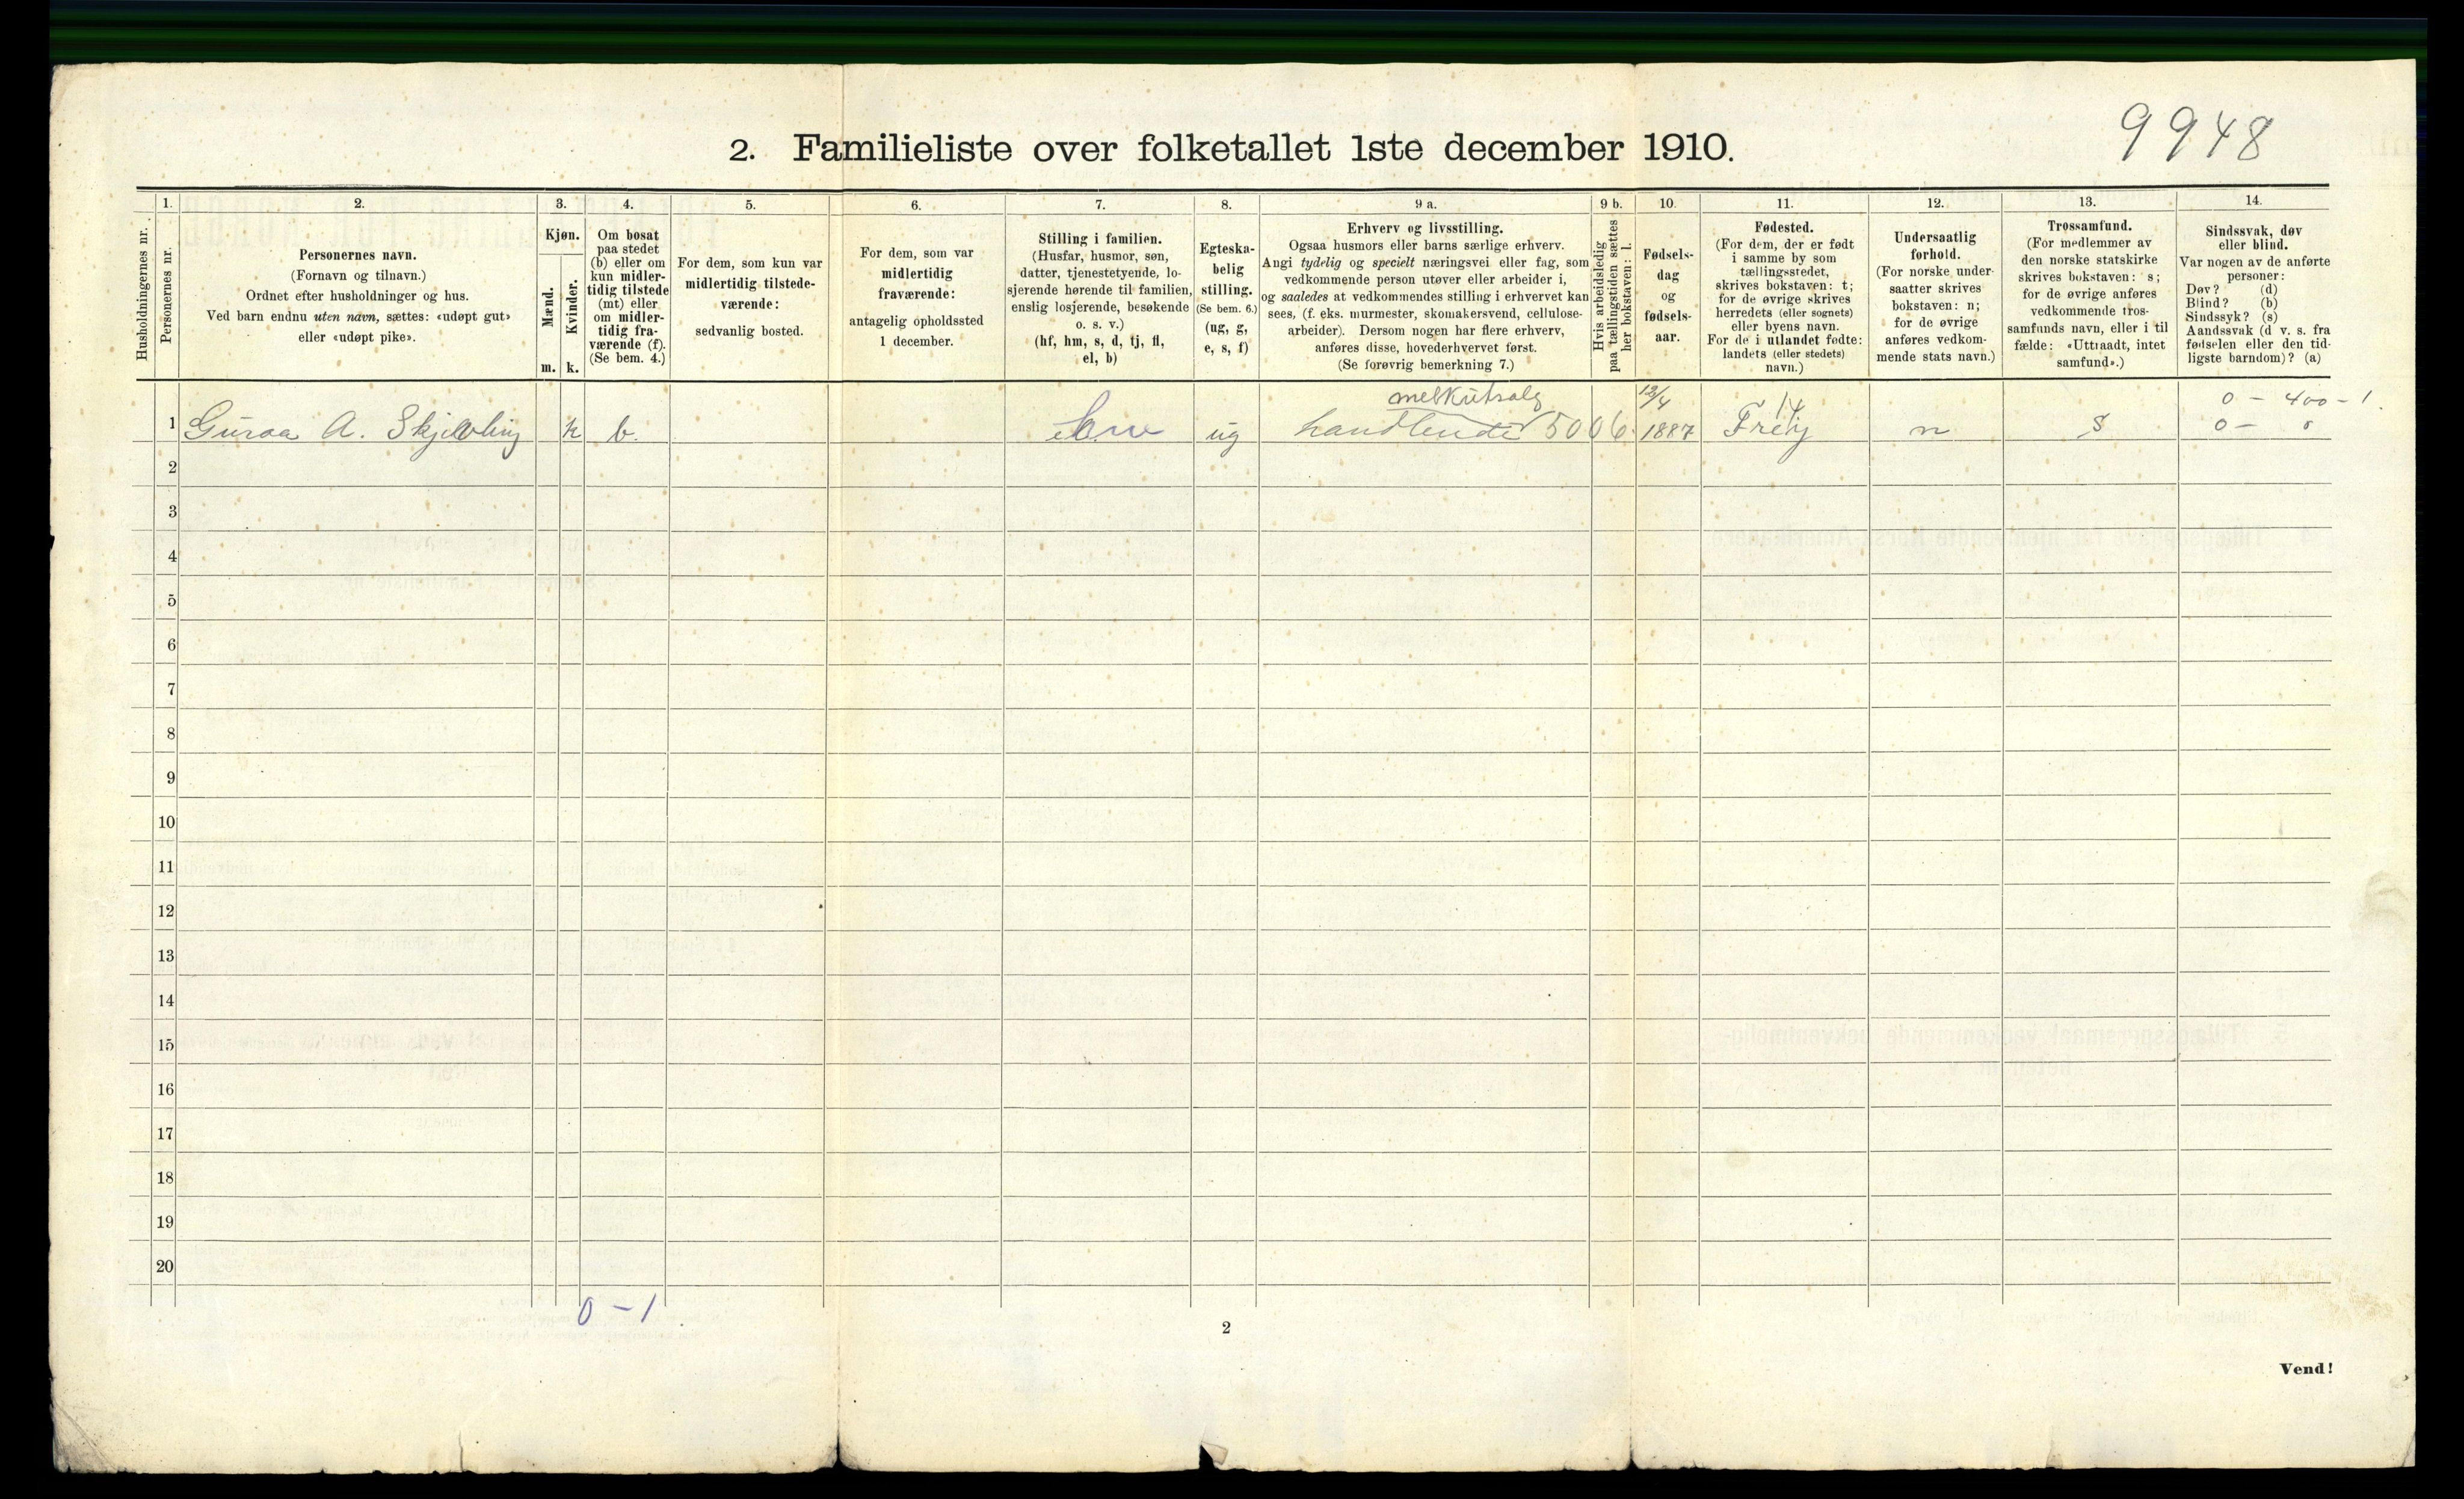 9948
2. Familieliste over folketallet 1ste december 1910.
Husholdningernes nr.
1.
Personernes nr.
2.
Personernes navn.
(Fornavn og tilnavn.)
Ordnet efter husholdninger og hus.
Ved barn endnu uten navn, sættes: «udøpt gut»
eller «udøpt pike».
3.
Kjøn.
Mænd.
Kvinder.
m. k.
4.
Om bosat
paa stedet
(b) eller om
kun midler-
tidig tilstede
(mt) eller
om midler-
tidig fra-
værende (f).
(Se bem. 4.)
5.
For dem, som kun var
midlertidig tilstede-
værende:
sedvanlig bosted.
6.
For dem, som var
midlertidig
fraværende:
antagelig opholdssted
1 december.
7.
Stilling i familien.
(Husfar, husmor, søn,
datter, tjenestetyende, lo-
sjerende hørende til familien,
enslig losjerende, besøkende
o. s. v.)
(hf, hm, s, d, tj, fl,
el, b)
8.
Egteska-
belig
stilling.
(Se bem. 6.)
(ug, g,
e, s, f)
9 a.
Erhverv og livsstilling.
Ogsaa husmors eller barns særlige erhverv.
Angi tydelig og specielt næringsvei eller fag, som
vedkommende person utøver eller arbeider i,
og saaledes at vedkommendes stilling i erhvervet kan
sees, (f. eks. murmester, skomakersvend, cellulose-
arbeider). Dersom nogen har flere erhverv,
anføres disse, hovederhvervet først.
(Se forøvrig bemerkning 7.)
9 b.
Hvis arbeidsledig
paa tællingstiden sættes
her bokstaven: l.
10.
Fødsels-
dag
og
fødsels-
aar.
11.
Fødested.
(For dem, der er født
i samme by som
tællingsstedet,
skrives bokstaven: t;
for de øvrige skrives
herredets (eller sognets)
eller byens navn.
For de i utlandet fødte:
landets (eller stedets)
navn.)
12.
Undersaatlig
forhold.
(For norske under-
saatter skrives
bokstaven: n;
for de øvrige
anføres vedkom-
mende stats navn.)
13.
Trossamfund.
(For medlemmer av
den norske statskirke
skrives bokstaven: s;
for de øvrige anføres
vedkommende tros-
samfunds navn, eller i til
fælde: «Uttraadt, intet
samfund».)
14.
Sindssvak, døv
eller blind.
Var nogen av de anførte
personer:
Døv? (d)
Blind? (b)
Sindssyk? (s)
Aandssvak (d v. s. fra
fødselen eller den tid-
ligste barndom)? (a)
melkutsalg 12/4 14 0 - 400 - 1.
1 Guroa A. Skjølving k b. ug handlende 5006. 1887 Frei n s 0 - 0
2
3
4
5
6
7
8
9
10
11
12
13
14
15
16
17
18
19
20
0 - 1
2
Vend!